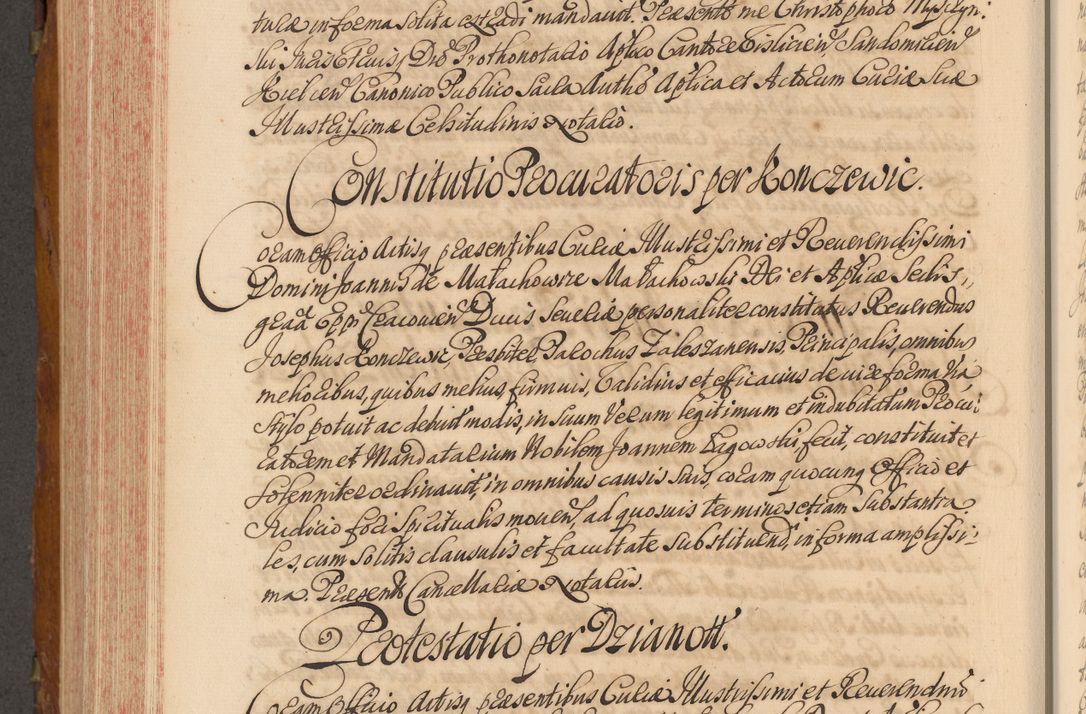 tura in forma solita est eadi mandavit. Praesente me Christophoro Mysclyn:
ski Juris Utriusq Dre Prothonotario Aplico Cantore Vislicien Sandomirien
Kielcien Canonico Publico Sacra Autho Aplica et Actorum Curiae Suae
Illustrissimae Celsitudinis Notario.
Constitutio Procuratoris per Konczewic.
Coram Officio Actisq praesentibus Curiae Illustrissimi et Reverendissimi
Domini Joannis de Małachowice Małachowski Dei et Aplicae Sedis
graa Eppi Cracovien Ducis Severiae personaliter constitutus Reverendus
Josephus Konczewic, Presbiter Parochus Zaleszanensis, Principalis, omnibus
melioribus, quibus melius, firmius, Validius et efficacius de iure forma Via
Stylo potuit ac debuit modis, in suum Verum legitimum et indubitatum Procu:
ratorem et Mandatarium Nobilem Joannem Łagowski, fecit, constituit et
solenniter ordinavit, in omnibus causis suis, coram quocunq Officio et
Judicio fori Spiritualis moven, ad quosvis terminos etiam Substantia
les, cum solitis clausulis et facultate substituend, in forma amplissi:
ma. Praesent Cancellariae Notariis.
Protestatio per Dzianott.
Coram Officio Actisq praesentibus Curiae Illustrissimi et Reverendmi